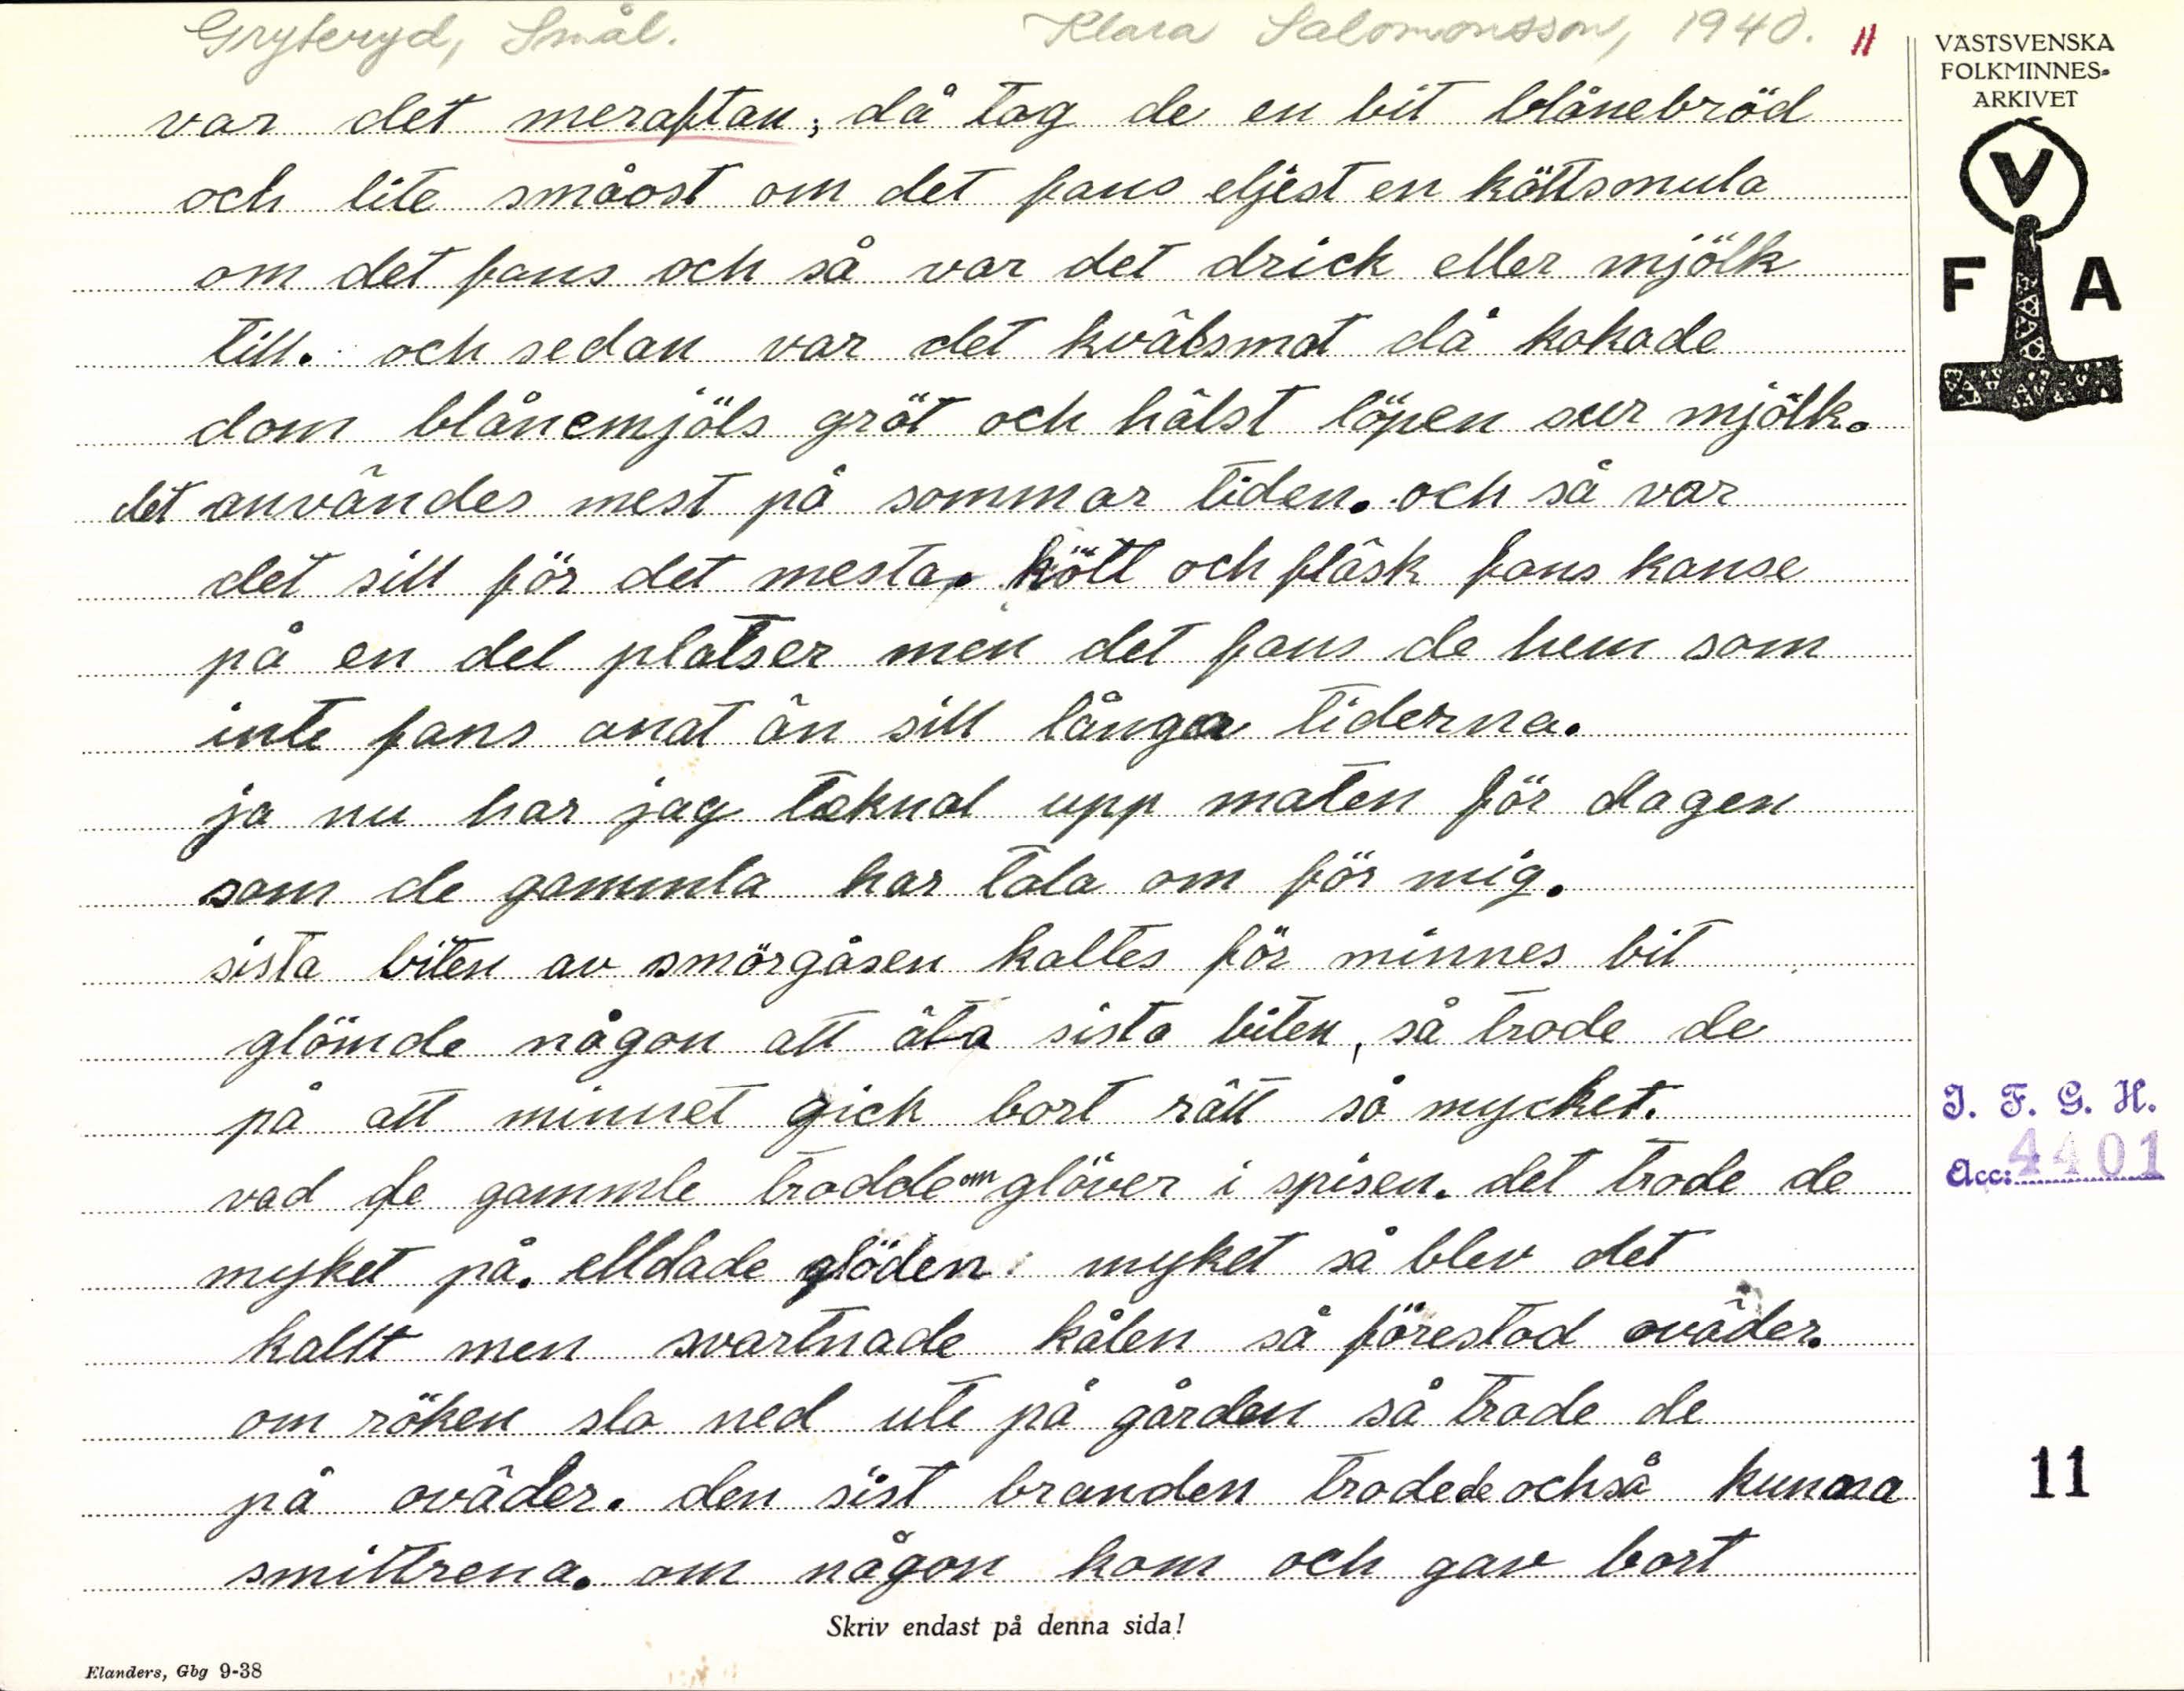 Gryteryd, Smål. Klara Salomonsson, 1940. 11
VÄSTSVENSKA
FOLKMINNES-
ARKIVET
V
F A
var det meraftan; då tog de en bit blånebröd
och lite småost om det fans eljest en köttsmula
om det fans och så var det drick eller mjölk
till. och sedan var det kvälsmat då kokade
dom blånemjöls gröt och hälst löpen sur mjölk.
det användes mest på sommar tiden. och så var
det sill för det mesta. kött och fläsk fans kanse
på en del platser men det fans de hem som
inte fans anat än sill långa tiderna.
ja nu har jag teknat upp maten för dagen
som de gammla har tala om för mig.
sista biten av smörgåsen kaltes för minnes bit
glömde någon att äta sista biten, så trode de
på att minnet gick bort rätt så mycket.
vad de gammle trodde om glöver i spisen. det trode de
myket på. elldade glöden myket så blev det
kallt men svartnade kålen så förestod oväder.
om röken slo ned ute på gården så trode de
på oväder. den sist branden trode de ochså kunna
smittrena. om någon kom och gav bort
J. F. G. H.
Acc: 4401
11
Skriv endast på denna sida!
Elanders, Gbg 9-38